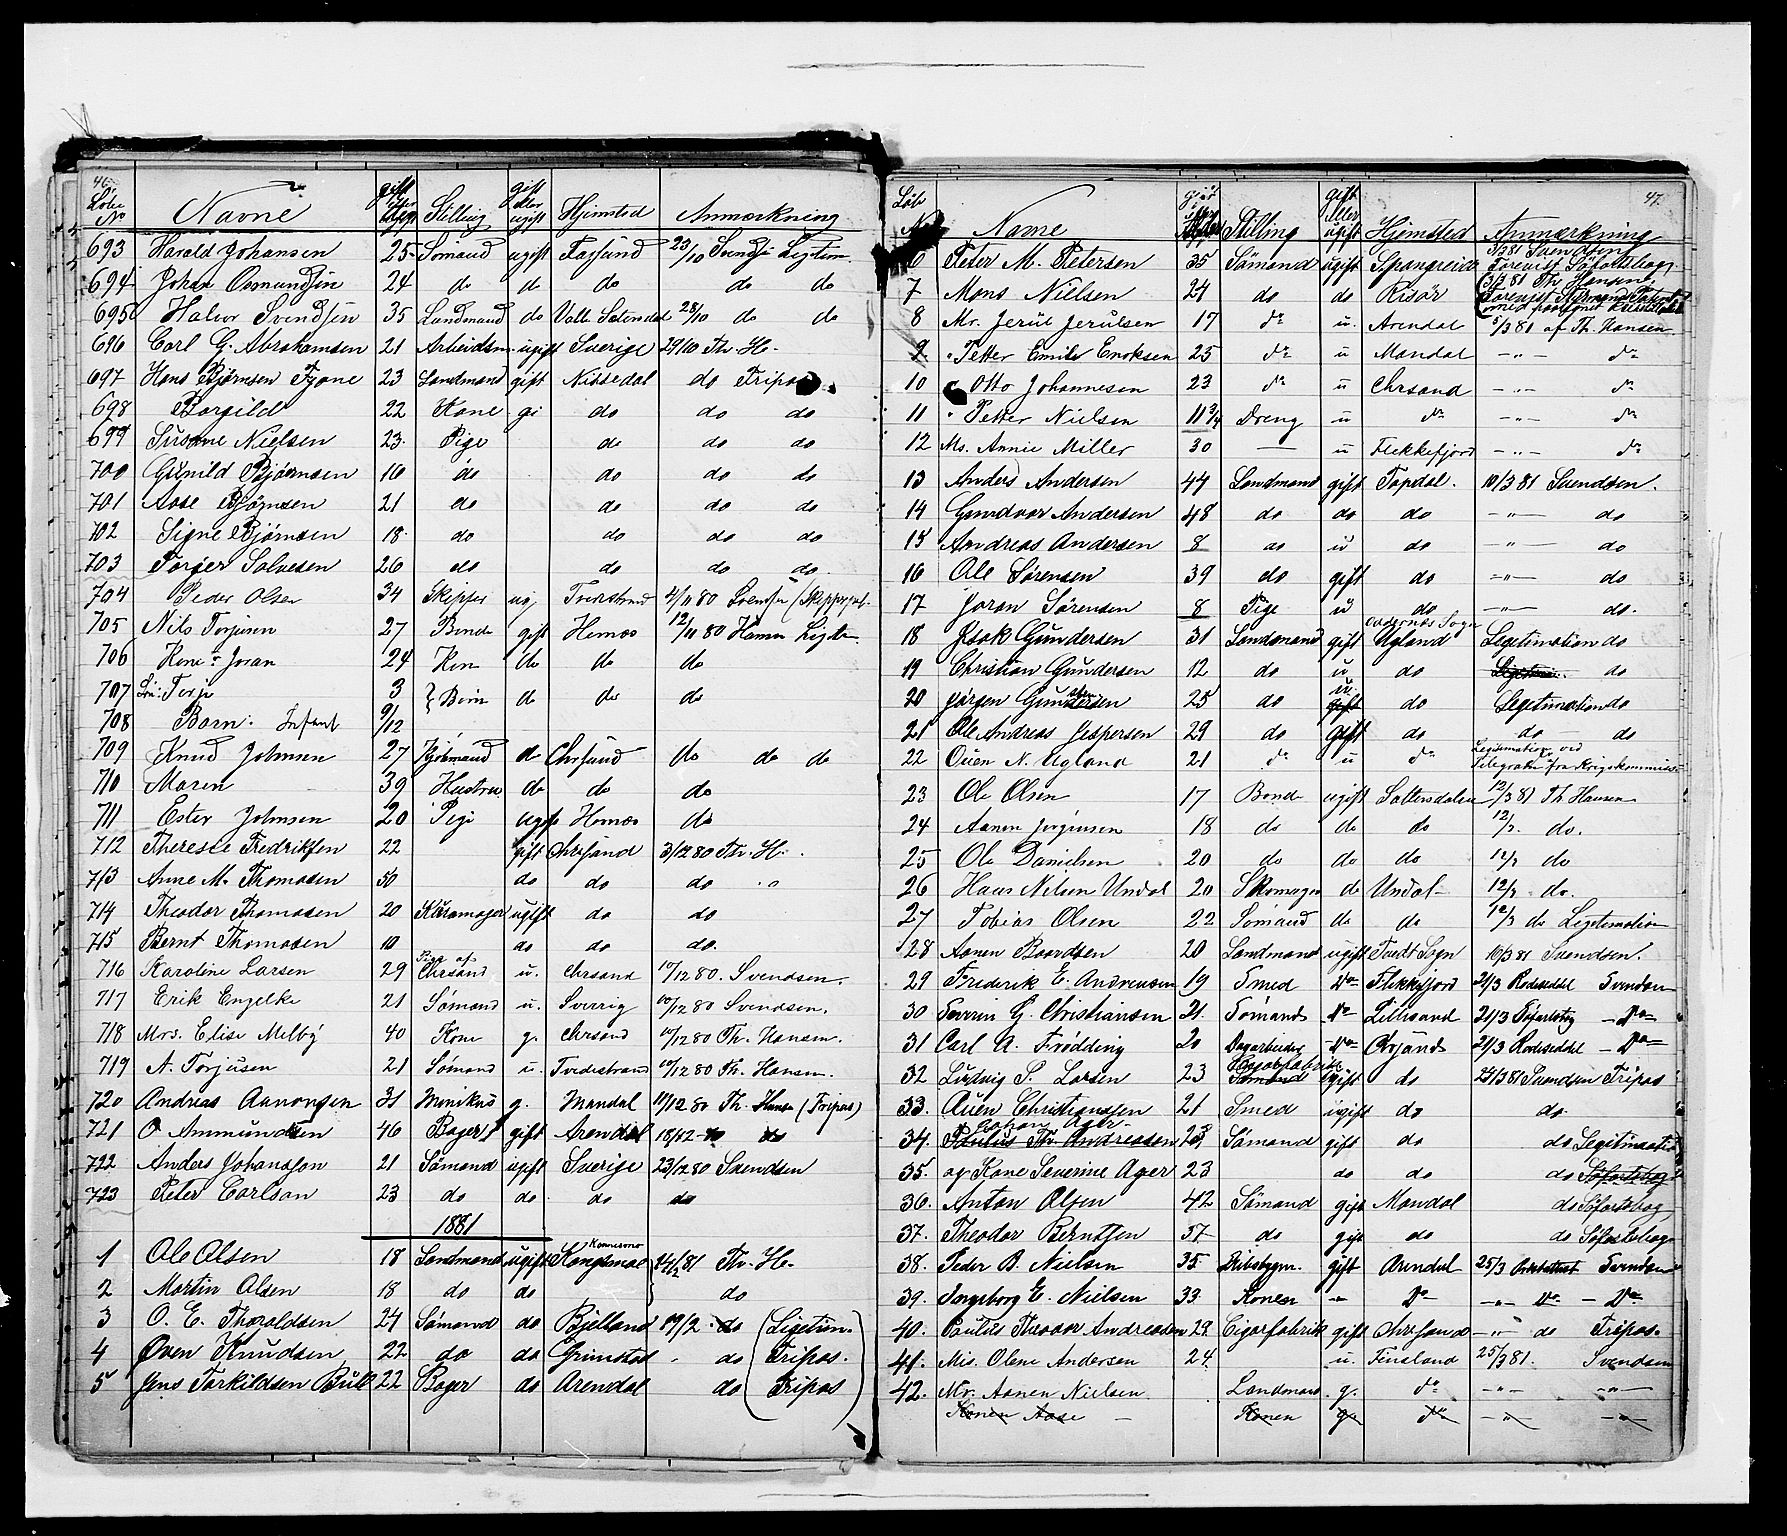 46.
Löbe No Navne gift eller Stilling gift eller ugift Hjemsted Anmærkning
693 Harald Johansen 25 Sömand ugift Farsund 23/10 Svendsen Legitim.
694 Johan Osmundsen 24 do do do do do
695 Halvor Svendsen 35 Landmand do Valle Setersdal 28/10 do do
696 Carl G. Abrahamsen 21 Arbeidsm. ugift Sverige 29/10 Th. H.
697 Hans Bjørnsen Tjone 23 Landmand gift Nissedal do Fripas
698 Borgild 22 Kone gi do do do
699 Susanne Nielsen 23 Pige do do do
700 Gunild Bjørnsen 16 do do do do
701 Aase Bjørnsen 21 do do do do
702 Signe Bjørnsen 18 do do do do
703 Torger Salvesen 26 do do do do
704 Peder Olsen 34 Skipper ug Tvedestrand 2/11 80 Svendsen
705 Nils Torjusen 27 Bonde gift Homos 12/11 80 Hansen Legitm
706 Kone: Joran 24 Kon do do do
707 Sön: Torje 3 } Börn do do do
708 Barn: Infant 9/12
709 Knud Johnsen 27 Kjöbmand do Chrsand do do do
710 Maren 39 Hustru do do do
711 Ester Johnsen 20 Pige ugift Homos do
712 Therese Fredriksen 22 gift Chrsand 3/12 80 Th. H.
713 Anne M. Thomasen 50 do do do "
714 Theodor Thomasen 20 ugift do do
715 Bernt Thomasen 10 do do do.
716 Karoline Larsen 29 Pige af Chrsand u. Chrsand 10/12 80. Svendsen.
717 Erik Engelke 21 Sömand u. Sverrig 10/12 80 Svendsen.
718 Mrs. Elise Melby 40 Kone g. Chrsand 10/12 80 Th. Hansen.
719 A. Torjusen 21 Sömand u. Tvedestrand 10/12 80 Th. Hansen.
720 Andreas Aanonsen 31 g. Mandal 12 80 Th. Hansen (Fripas)
721 O Ammundsen 46 Bager gift Arendal 18/12 do
722 Anders Johansson 21 Sömand ugift Sverige 23/12 80 Svendsen
723 Peter Carlson 23 do do do do
1881
1 Ole Olsen 18 Landmand ugift Kongsmoe 14/2 81 Th. H.
2 Martin Olsen 18 do do do
3 O. E. Thoraldsen 24 Sömand do Bjelland 19/2 do (Ligetim.
4 Oven Knudsen 22 do do Grimstad - do Fripas.
5 Jens Torkildsen Bull 22 Bager do Arendal do Fripas)
47.
Löb No Navne Stilling gift eller ugift Hjemsted Anmærkning
6 Peter M. Petersen 35 Sömand ugift Spangreid 3/3 81 Svendsen Forevist Söfartsbog
7 Mons Nilsen 24 do do Risör 3/3 81 Th Hansen
8 Mr. Jerul Jerulsen 17 do u. Arendal 5/3 81 af Th. Hansen
9 " Petter Emil Enoksen 25 do u Mandal - " - do
10 " Otto Johannesen 23 do u Chrsand - " - do
11 " Petter Nielsen 11 3/4 Dreng u do - " - do
12 Ms. Annie Miller 30 — u Flekkefjord - " - do
13 Anders Andersen 44 Landmand gift Topdal. 10/3 81 Svendsen.
14 Gundvor Andersen 48 do do do - " - do
15 Andreas Andersen 8 do u do - " - do
16 Ole Sørensen 39 do gift do - " - do
17 Joran Sørensen 8 Pige u do - " - do.
18 Isak Gundersen 31 Landmand gift Ugland Legitimation do
19 Christian Gundersen 12 do u do Legitimi. do
20 Jörgen Gundersen 25 do u. gift do Legitimation do
21 Ole Andreas Jespersen 29 do gift do do do
22 Ouen N. Ugland 21 do u do Legitmation ved Telegrafen fra Krigskommiss.
23 Ole Olsen 17 Bond ugift Sattersdalen 12/3 81 Th Hansen
24 Aanen Jorginsen 18 do do do 12/3. do.
25 Ole Danielsen 20 do do do 12/3 do
26 Hans Nilsen Undal 20 Skomager do Undal 12/3 do.
27 Tobias Olsen 22 Sömand do do 12/3 do Legitimation
28 Aanen Baardsen 20 Landmand ugift Tvedt Sogn 16/3 81 Svendsen.
29 Frederik E. Andreasen 19 Smed Do Flekkefjord 21/3 Rodeseddel Svendsen
30 Severin G. Christiansen 21 Sömand Do Lillesand 21/3 Söfartsbog - Do
31 Carl A. Frödding 20 Dagarbeider Do Chrsand 21/3 Rodeseddel - Do
32 Ludvig S. Larsen 23 Sömand ugift do 24/3 81 Svendsen Fripas
33. Ouen Christiansen 21 Smed ugift do do.
34. Johan Ager Paulus Th. Andreasen 23 Sömand gift do do Legitimatio
35. og Kone Severine Ager 23 do do do Söfartsbog
36. Anton Olsen 42 Sömand gift Mandal do Söfartsbog
37. Theodor Berntsen 37 do gift do do Söfartsbog
38. Peder B. Nielsen 35 Skibsbygm. gift Arendal 25/3 Svendsen
39. Ingeborg E. Nielsen 33 Konen " Do - " - Do - Do
40. Paulus Theodor Andreasen 29 Cigarfabrik gift Chrsand - " - do Fripas.
41. Mis. Olene Andersen 24. u. Finsland 25/3 81. Svendsen
42. Mr. Aanen Nielsen Landmand g. do - " - - " -
Konen Aase - Konen g. do - " - - " -